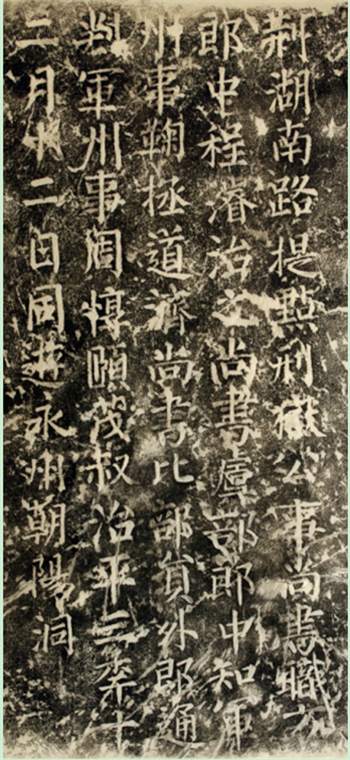 荊湖南路提點刑獄公事尚書職方
郎中程濬治之尚書虞部郎中知軍
州事鞠拯道濟尚書比部員外郎通
判軍州事周惇頤茂叔治平三秊十
二月十二日同遊永州朝陽洞